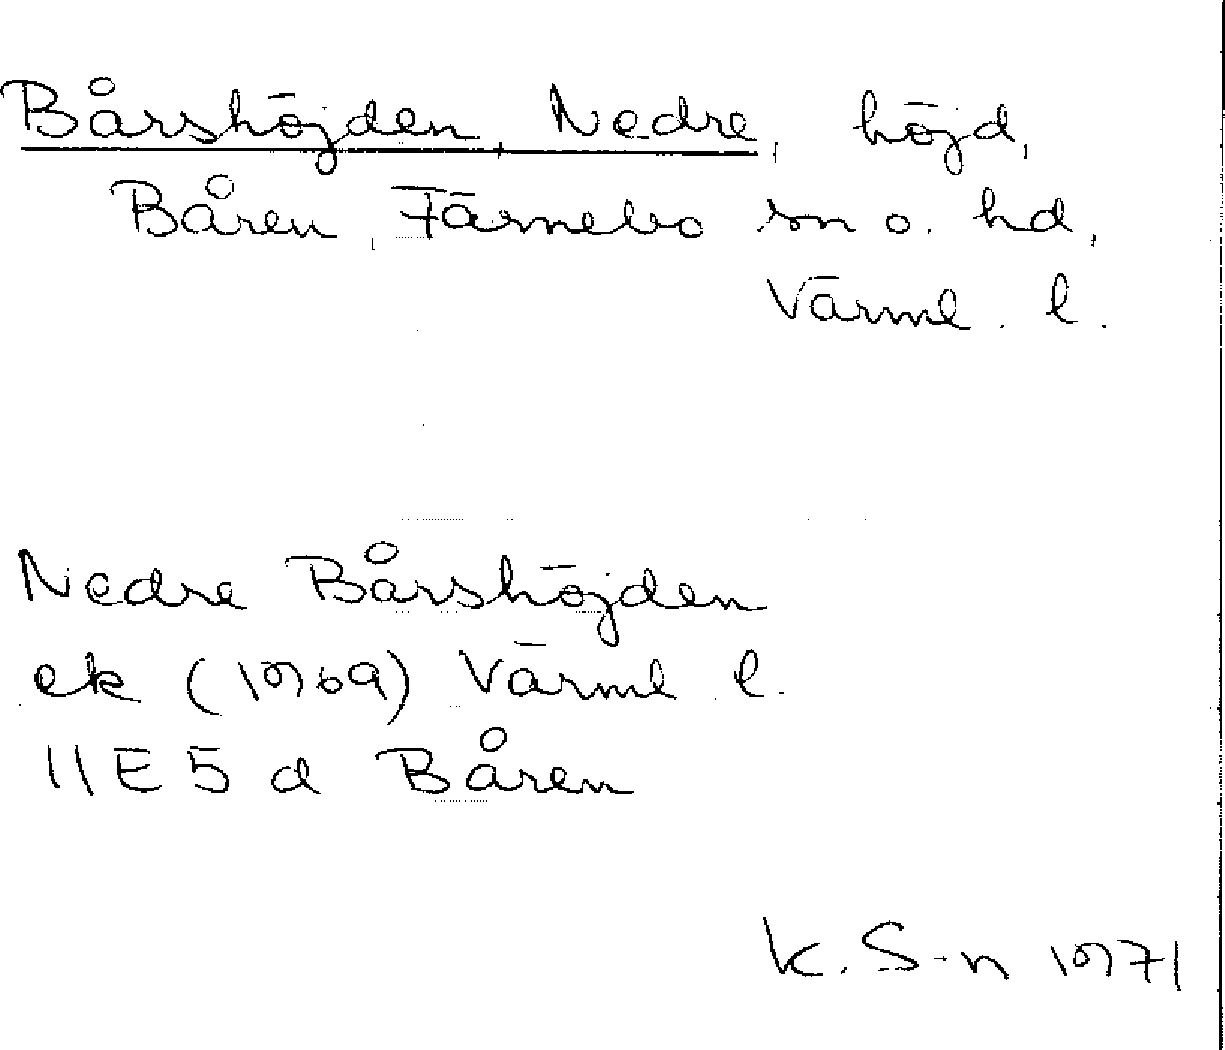 Bårshöjden, Nedre, höjd,
Båren, Färnebo sn o. hd,
Värml. l.
Nedre Bårshöjden
ek (1969) Värml. l.
11E 5 d Båren
K. S-n 1971